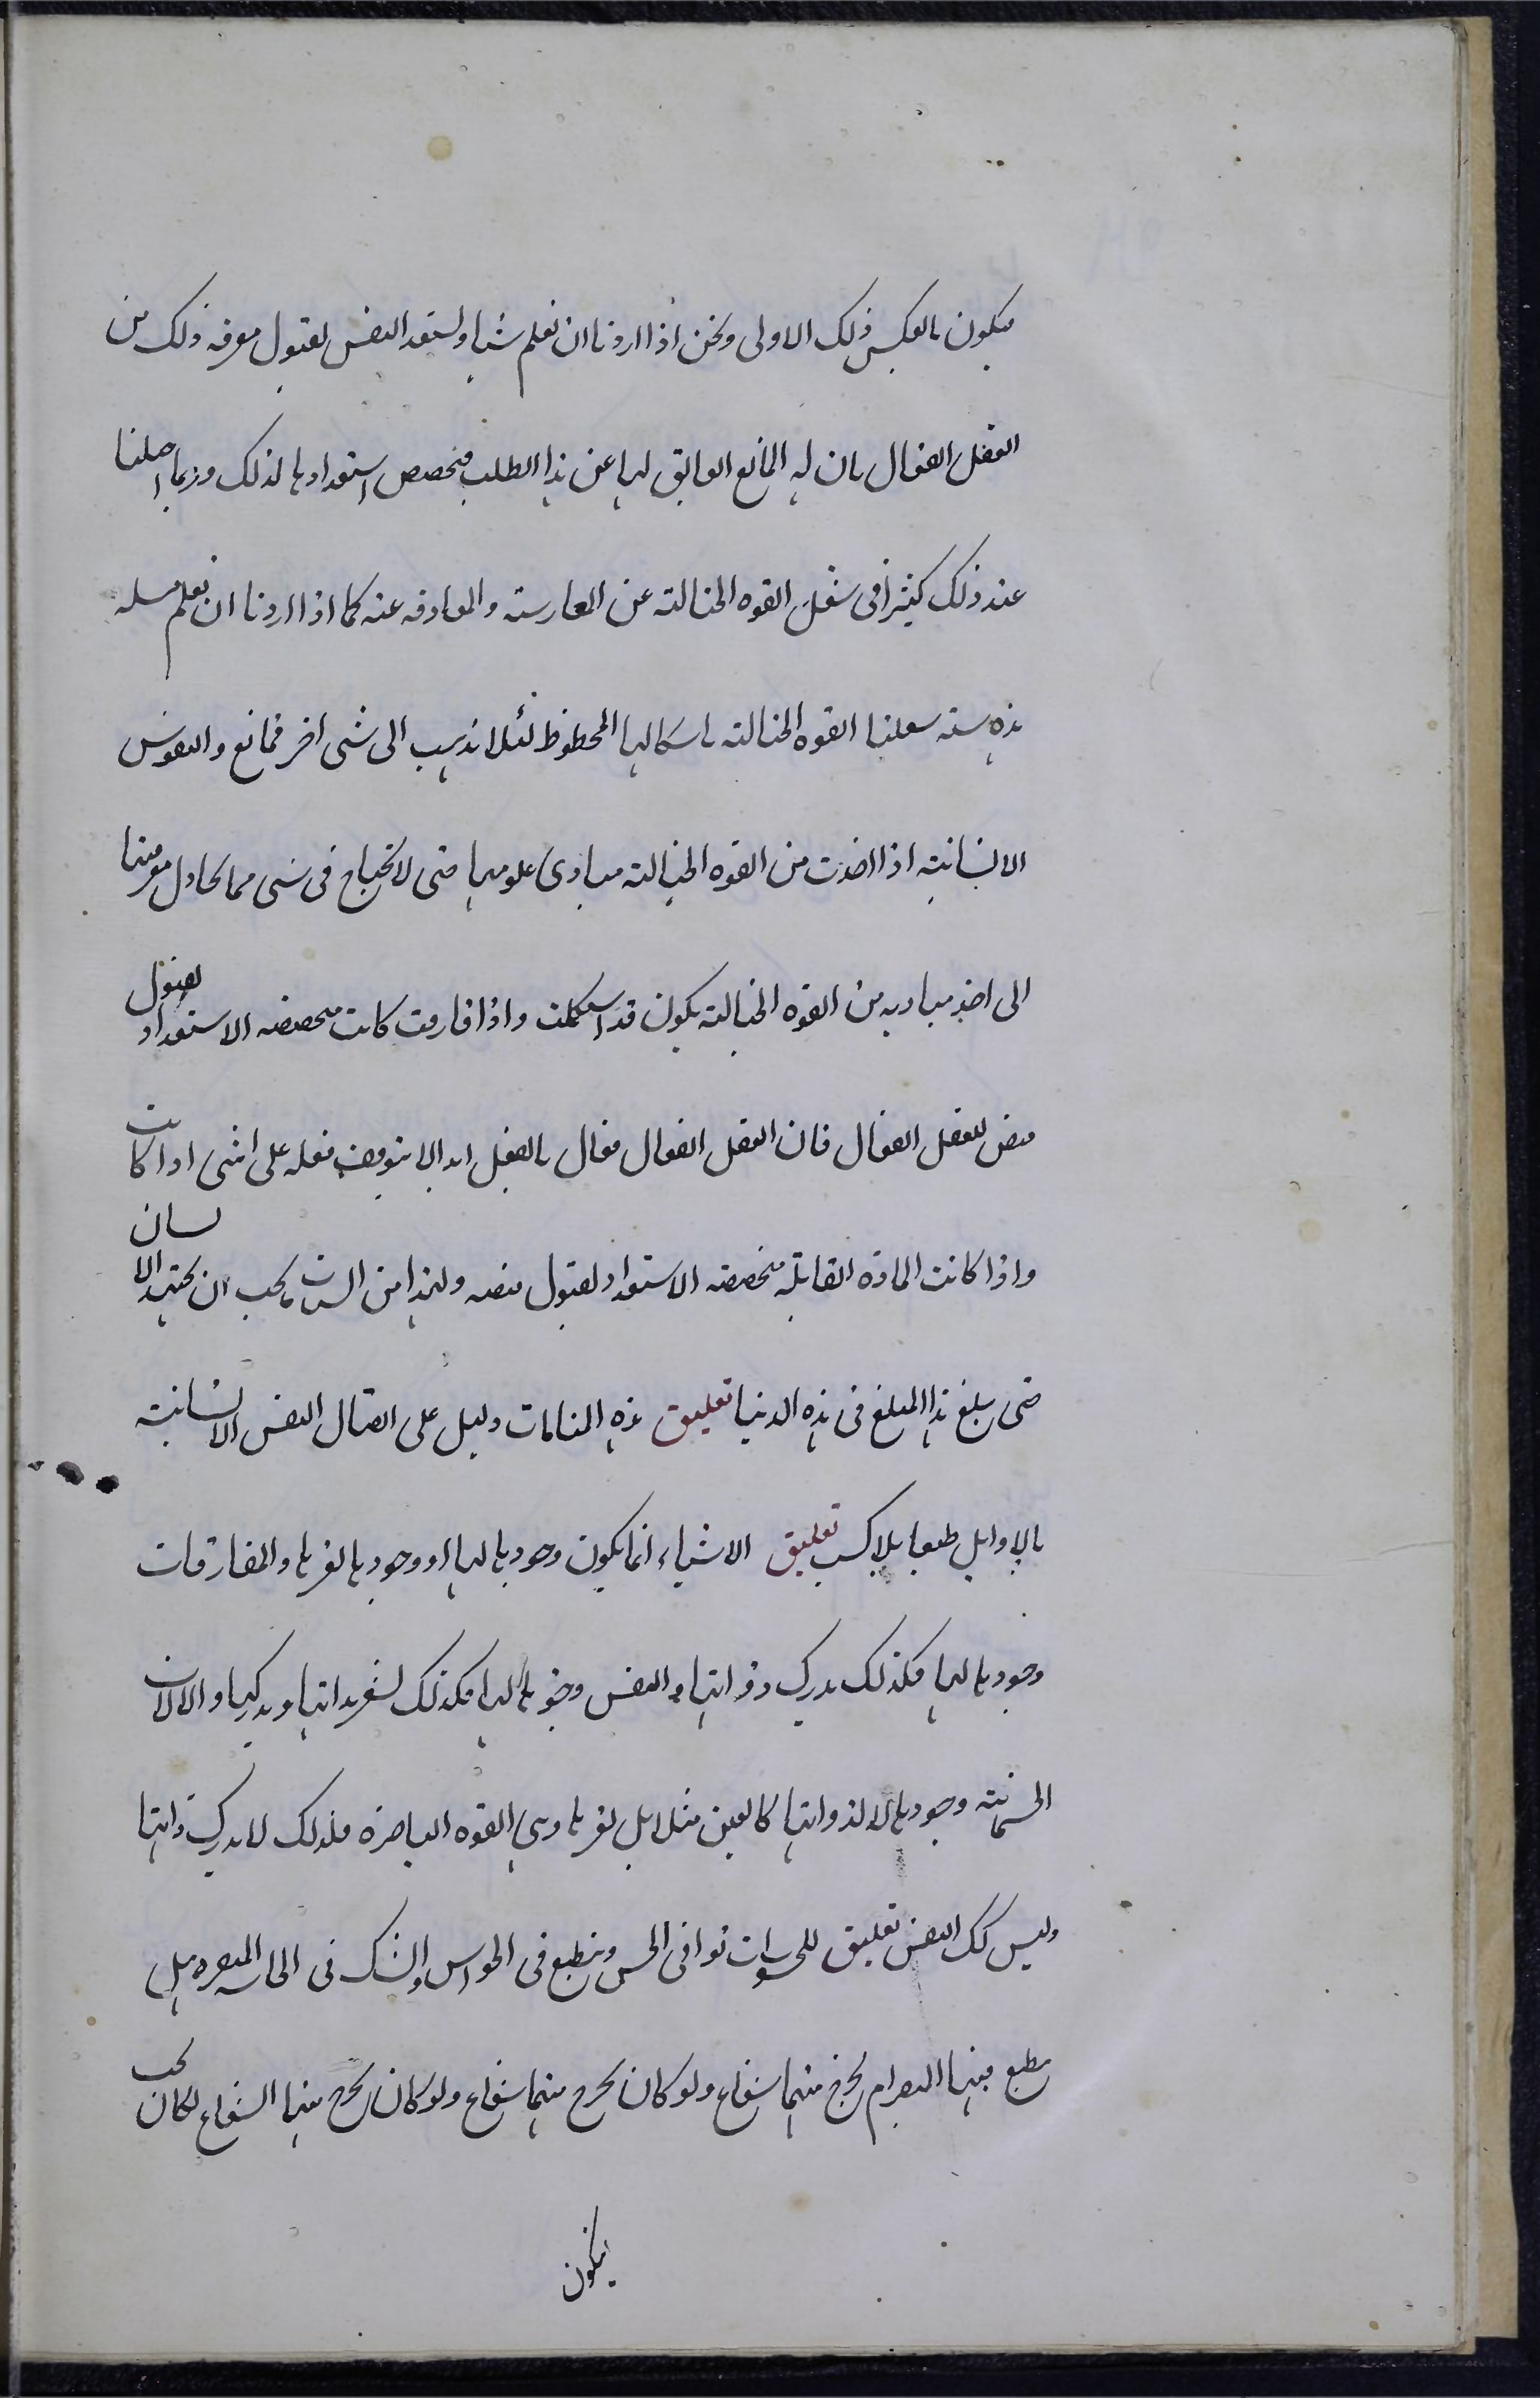 فيكون بالعكس ذلك الاولى ونحن اذا اردنا ان نعلم شيا ولستعد النفس لقبول معرفه ذلك من
العقل الفعال بان له المانع العايق لها عن هذا الطلب فتخصص استعدادها لذلك وربما احلنا
عند ذلك كثيرا فى شغل القوه الخيالية عن المعارضة والمعاوقه عنه كما اذا اردنا ان نعلم مسله
هندسية شغلنا القوه الخيالية باشكالها المخطوط لئلا تذهب الى شى اخر فمانع والنفوس
الانسانية اذا اخذت من القوه الخيالية مبادى علومها حتى لا تحتاج فى شى مما تحاول معرفتها
الى اخذ مباديه من القوه الخيالية يكون قد استكملت واذا فارقت كانت متخصصه الاستعداد لقبول
فيض العقل الفعال فان العقل الفعال فعال بالفعل ابدا لا يتوقف فعله على شى اذا كانت
واذا كانت المادة القابلة متخصصه الاستعداد لقبول فيضه ولهذا من السان يجب ان يجتهد الانسان
حتى يبلغ هذا المبلغ فى هذه الدنيا تعليق هذه المنامات دليل على اتصال النفس الانسانية
بالاوايل طبعا بلا كسب تعليق الاشياء انما يكون وجودها لها او وجودها لغيرها والمفارقات
وجودها لها فلذلك يدرك ذواتها والنفس وجودها لها فلذلك تشعر بذاتها ويدركها والالات
الجسمانية وجودها لا لذواتها كالعين مثلا بل لغيرها وهى القوه الباصرة فلذلك لا يدرك ذاتها
وليس كك النفس تعليق للمحسوسات توافى الحس وينطبع فى الحواس والشك فى الحاسه المبصره هل
ينطبع فيها المبصر ام يخرج منها شعاع ولو كان يخرج منها شعاع ولو كان يخرج منها الشعاع لكان يجب
ان يكون